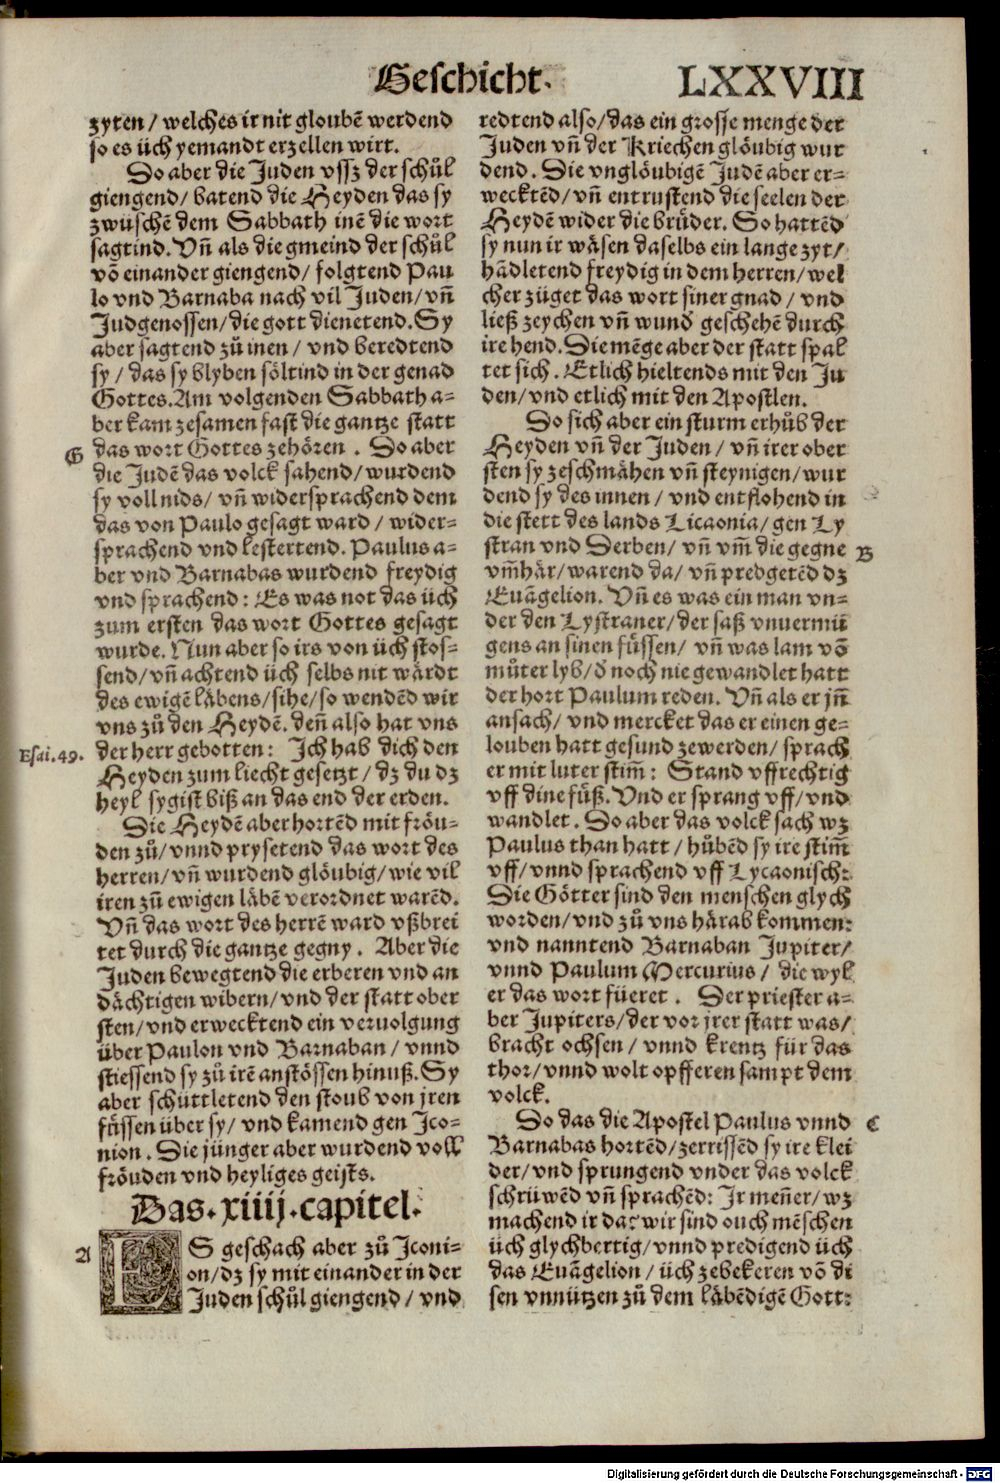 Geschicht. LXXVIII
zyten / welches ir nit gloubē werdend
so es üch yemandt erzellen wirt.
So aber die Juden vssz der schůl
giengend / batend die Heyden das sy
zwüschē dem Sabbath inē die wort
sagtind. Vñ als die gmeind der schůl
võ einander giengend / folgtend Pau
lo vnd Barnaba nach vil Juden / vñ
Judgenossen / die gott dienetend. Sy
aber sagtend zů inen / vnd beredtend
sy / das sy blyben söltind in der genad
Gottes. Am volgenden Sabbath a-
ber kam zesamen fast die gantze statt
G das wort Gottes zehören . So aber
die Judē das volck sahend / wurdend
sy voll nids / vñ widersprachend dem
das von Paulo gesagt ward / wider-
sprachend vnd lestertend. Paulus a-
ber vnd Barnabas wurdend freydig
vnd sprachend : Es was not das üch
zum ersten das wort Gottes gesagt
wurde. Nun aber so irs von üch stos-
send / vñ achtend üch selbs nit wärdt
des ewigē läbens / sihe / so wendēd wir
vns zů den Heydē. deñ also hat vns
Esai.49. der herr gebotten : Ich hab dich den
Heyden zum liecht gesetzt / dz du dz
heyl sygist biß an das end der erden.
Die Heydē aber hortēd mit fröu-
den zů / vnnd prysetend das wort des
herren / vñ wurdend glöubig / wie vil
iren zů ewigen läbē verordnet warēd.
Vñ das wort des herrē ward vßbrei
tet durch die gantze gegny . Aber die
Juden bewegtend die erberen vnd an
dächtigen wibern / vnd der statt ober
sten / vnd erwecktend ein veruolgung
über Paulon vnd Barnaban / vnnd
stiessend sy zů irē anstössen hinuß. Sy
aber schüttletend den stoub von jren
füssen über sy / vnd kamend gen Ico-
nion . Die jünger aber wurdend voll
fröuden vnd heyliges geists.
Das. xiiij. capitel.
A ES geschach aber zů Iconi-
on / dz sy mit einander in der
Juden schůl giengend / vnd
redtend also / das ein grosse menge der
Juden vñ der Kriechen glöubig wur
dend . Die vnglöubigē Judē aber er-
wecktēd / vñ entrustend die seelen der
Heydē wider die brüder. So hattēd
sy nun ir wäsen daselbs ein lange zyt /
hādletend freydig in dem herren / wel
cher züget das wort siner gnad / vnd
ließ zeychen vñ wunď geschehē durch
ire hend. Die mēge aber der statt spal
tet sich . Etlich hieltends mit den Ju
den / vnd etlich mit den Apostlen.
So sich aber ein sturm erhůb der
Heyden vñ der Juden / vñ irer ober
sten sy zeschmähen vñ steynigen / wur
dend sy des innen / vnd entflohend in
die stett des lands Licaonia / gen Ly
stran vnd Derben / vñ vm̄ die gegne B
vm̄här / warend da / vñ predgetēd dz
Euāgelion. Vñ es was ein man vn-
der den Lystraner / der saß vnuermü
gens an sinen füssen / vñ was lam võ
můter lyb / ď noch nie gewandlet hatt
der hort Paulum reden. Vñ als er jñ
ansach / vnd mercket das er einen ge-
louben hatt gesund zewerden / sprach
er mit luter stim̄ : Stand vffrechtig
vff dine füß. Vnd er sprang vff / vnd
wandlet . So aber das volck sach wz
Paulus than hatt / hůbēd sy ire stim̄
vff / vnnd sprachend vff Lycaonisch:
Die Götter sind den menschen glych
worden / vnd zů vns härab kommen:
vnd nanntend Barnaban Jupiter /
vnnd Paulum Mercurius / die wyl
er das wort füeret . Der priester a-
ber Jupiters / der vor jrer statt was /
bracht ochsen / vnnd krentz für das
thor / vnnd wolt opfferen sampt dem
volck.
So das die Apostel Paulus vnnd C
Barnabas hortēd / zerrissēd sy ire klei
der / vnd sprungend vnder das volck
schrüwēd vñ sprachēd : Ir meñer / wz
machend ir da? wir sind ouch mēschen
üch glychbertig / vnnd predigend üch
das Euāgelion / üch zebekeren võ di
sen vnnützen zů dem läbēdigē Gott:
Digitalisierung gefördert durch die Deutsche Forschungsgemeinschaft - DFG